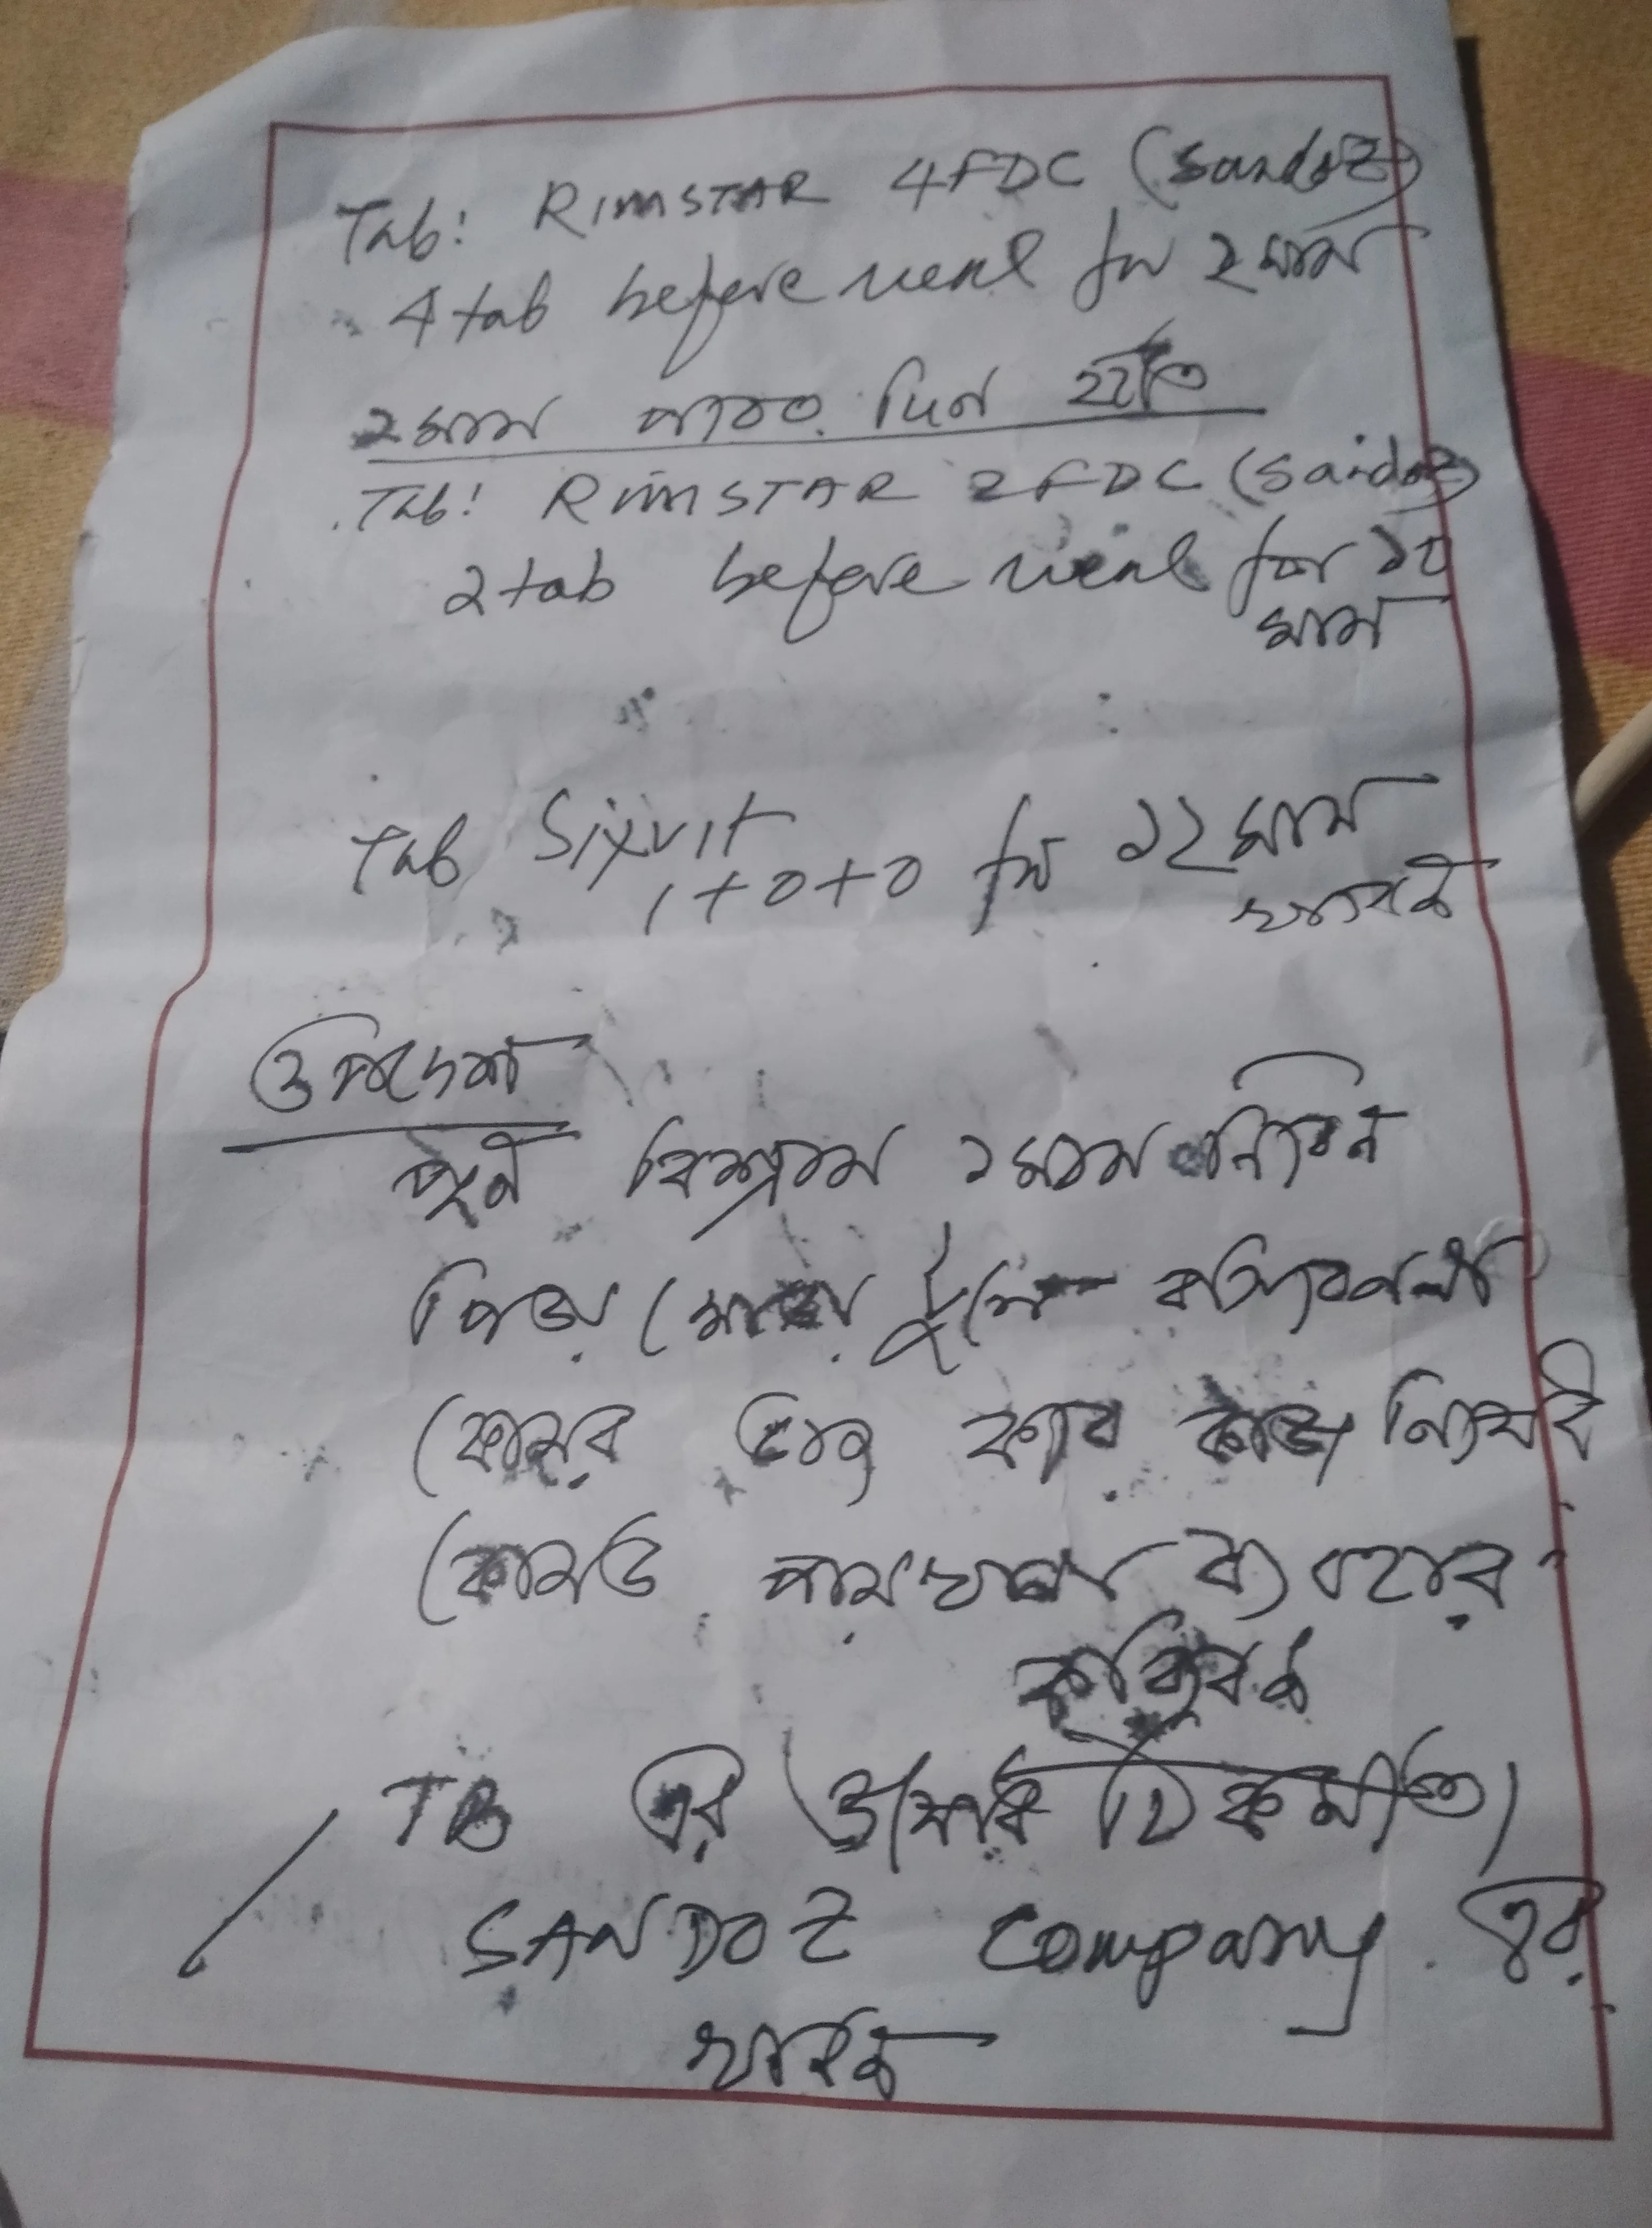 Tab: RIMSTAR 4FDC (Sandoz)
4 tab before meal for ২ মাস
২ মাস পরের দিন হইতে
Tab: RIMSTAR 2FDC (Sandoz)
2 tab before meal for ১০
মাস
Tab Sixvit
1+0+0 for ১২ মাস
খাবেন
উপদেশ
পূর্ন বিশ্রাম ১ মাস নিবেন
পিড়া মোড়া টুলে বসিবেন না
কোমর ভাজ করে কাজ নিষেধ
কোমড পায়খানা ব্যবহার
করিবেন
TB এর ঔষধ চিকিৎসা
SANDOZ Company এর
খাবেন